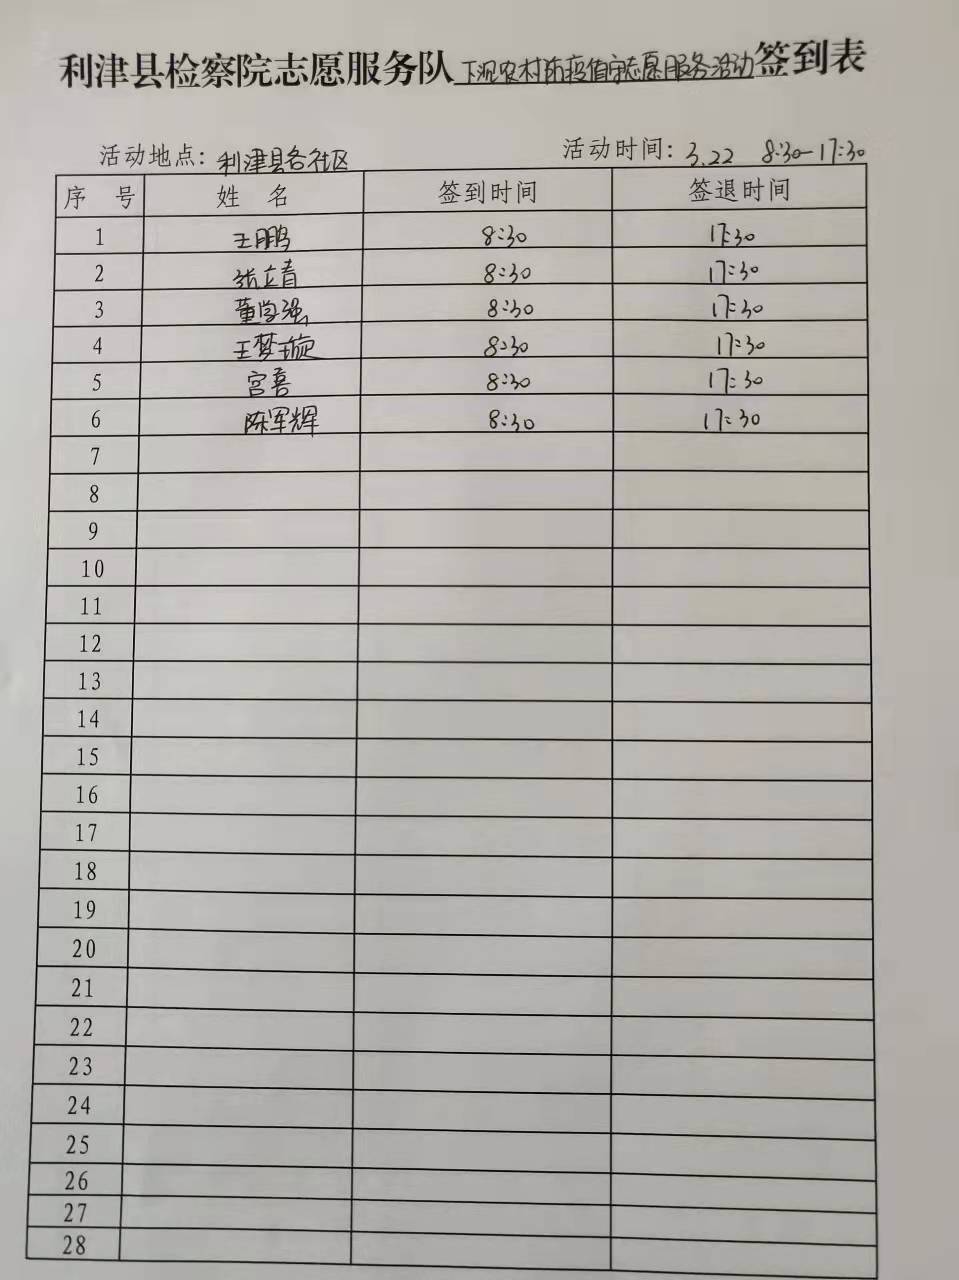 利津县检察院志愿服务队下沉农村防疫值守志愿服务活动签到表
活动地点：利津县各社区 活动时间：3.22 8:30-17:30
序 号 姓 名 签到时间 签退时间
1 王鹏 8:30 17:30
2 张立青 8:30 17:30
3 董学强 8:30 17:30
4 王梦璇 8:30 17:30
5 宫喜 8:30 17:30
6 陈军辉 8:30 17:30
7
8
9
10
11
12
13
14
15
16
17
18
19
20
21
22
23
24
25
26
27
28